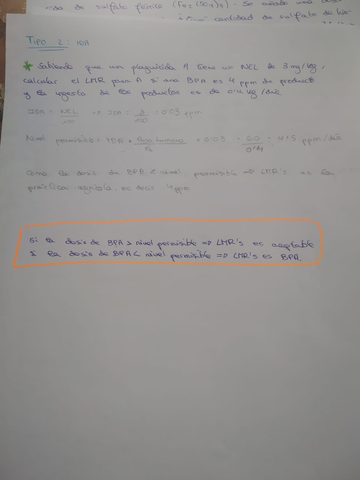 de sulfato férrico (Fe2(SO4)3). Se añade una
cantidad de sulfato de
TIPO 2: IDA
* Sabiendo que un plaguicida A tiene un NEL de 3 mg/kg,
calcular el LMR para A si una BPA es 4 ppm de producto
y la ingesta de los productos es de 0'4 kg/día.
IDA = NEL/100 → IDA = 3/100 = 0'03 ppm
Nivel permisible = IDA * Peso humano = 0'03 · 60/0'4 = 4'5 ppm/día
Como la dosis de BPA < nivel permisible ⇒ LMR's es la
práctica agrícola, es decir 4 ppm
Si la dosis de BPA > nivel permisible ⇒ LMR's es aceptable
Si la dosis de BPA < nivel permisible ⇒ LMR's es BPA.